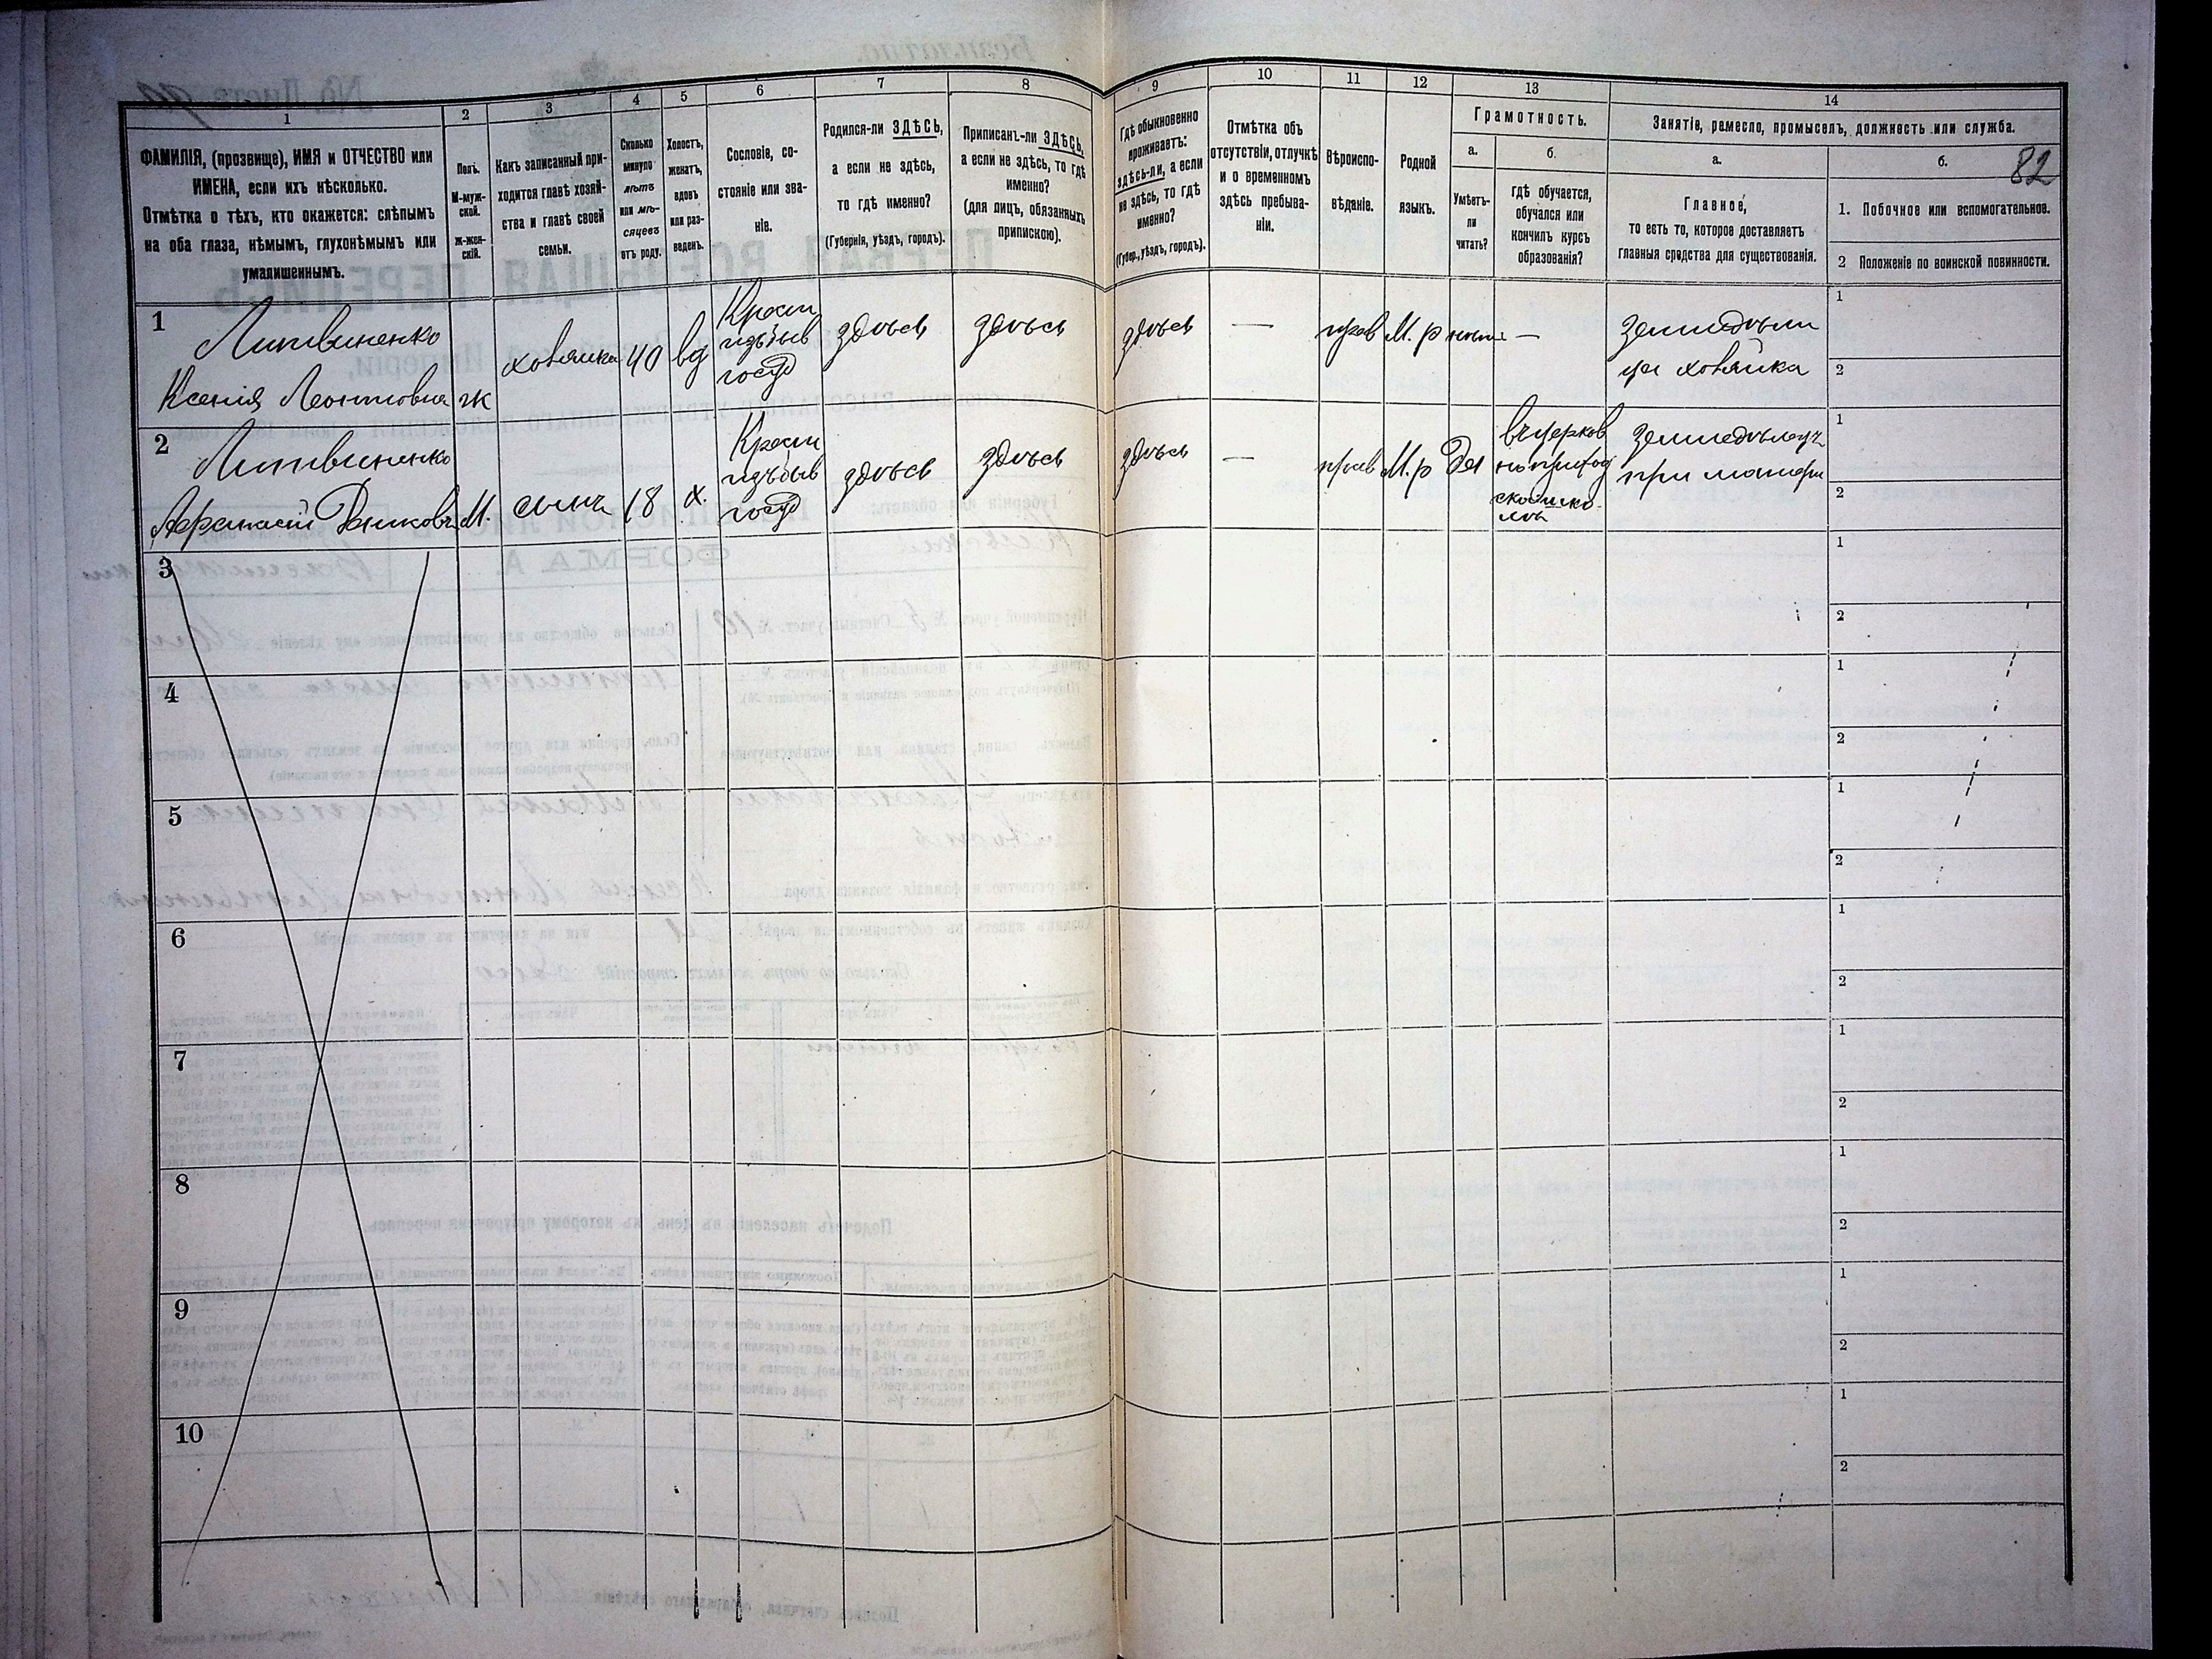 1 2 3 4 5 6 7 8 9 10 11 12 13 14
ФАМИЛІЯ, (прозвище), ИМЯ и ОТЧЕСТВО или
ИМЕНА, если ихъ нѣсколько.
Отмѣтка о тѣхъ, кто окажется: слѣпымъ
на оба глаза, нѣмымъ, глухонѣмымъ или
умалишеннымъ.
Полъ.
М-муж-
ской.
ж-жен-
скій.
Какъ записанный при-
ходится главѣ хозяй-
ства и главѣ своей
семьи.
Сколько
минуло
лѣтъ
или мѣ-
сяцевъ
отъ роду.
Холостъ,
женатъ,
вдовъ
или раз-
веденъ.
Сословіе, со-
стояніе или зва-
ніе.
Родился-ли ЗДѢСЬ,
а если не здѣсь,
то гдѣ именно?
(Губернія, уѣздъ, городъ).
Приписанъ-ли ЗДѢСЬ,
а если не здѣсь, то гдѣ
именно?
(для лицъ, обязанныхъ
припискою).
Гдѣ обыкновенно
проживаетъ:
здѣсь-ли, а если
не здѣсь, то гдѣ
именно?
(Губер., уѣздъ, городъ).
Отмѣтка объ
отсутствіи, отлучкѣ
и о временномъ
здѣсь пребыва-
ніи.
Вѣроиспо-
вѣданіе.
Родной
языкъ.
Грамотность.
а.
Умѣетъ-
ли
читать?
б.
гдѣ обучается,
обучался или
кончилъ курсъ
образованія?
Занятіе, ремесло, промыселъ, должность или служба.
а.
Главное,
то есть то, которое доставляетъ
главныя средства для существованія.
б.
82
1. Побочное или вспомогательное.
2 Положеніе по воинской повинности.
1
Литвиненко
Ксенія Леонтовна
ж
хозяйка
40
вд
Крест
изъ быв
госуд
здѣсь
здѣсь
здѣсь
—
прав
М. р
—
хозяйка
1
2
2
Литвиненко
Афанасій
М.
сынъ
18
х.
Крест
изъ быв
госуд
здѣсь
здѣсь
здѣсь
—
прав
М. р
Да
при матери
1
2
3
1
2
4
1
2
5
1
2
6
1
2
7
1
2
8
1
2
9
1
2
10
1
2